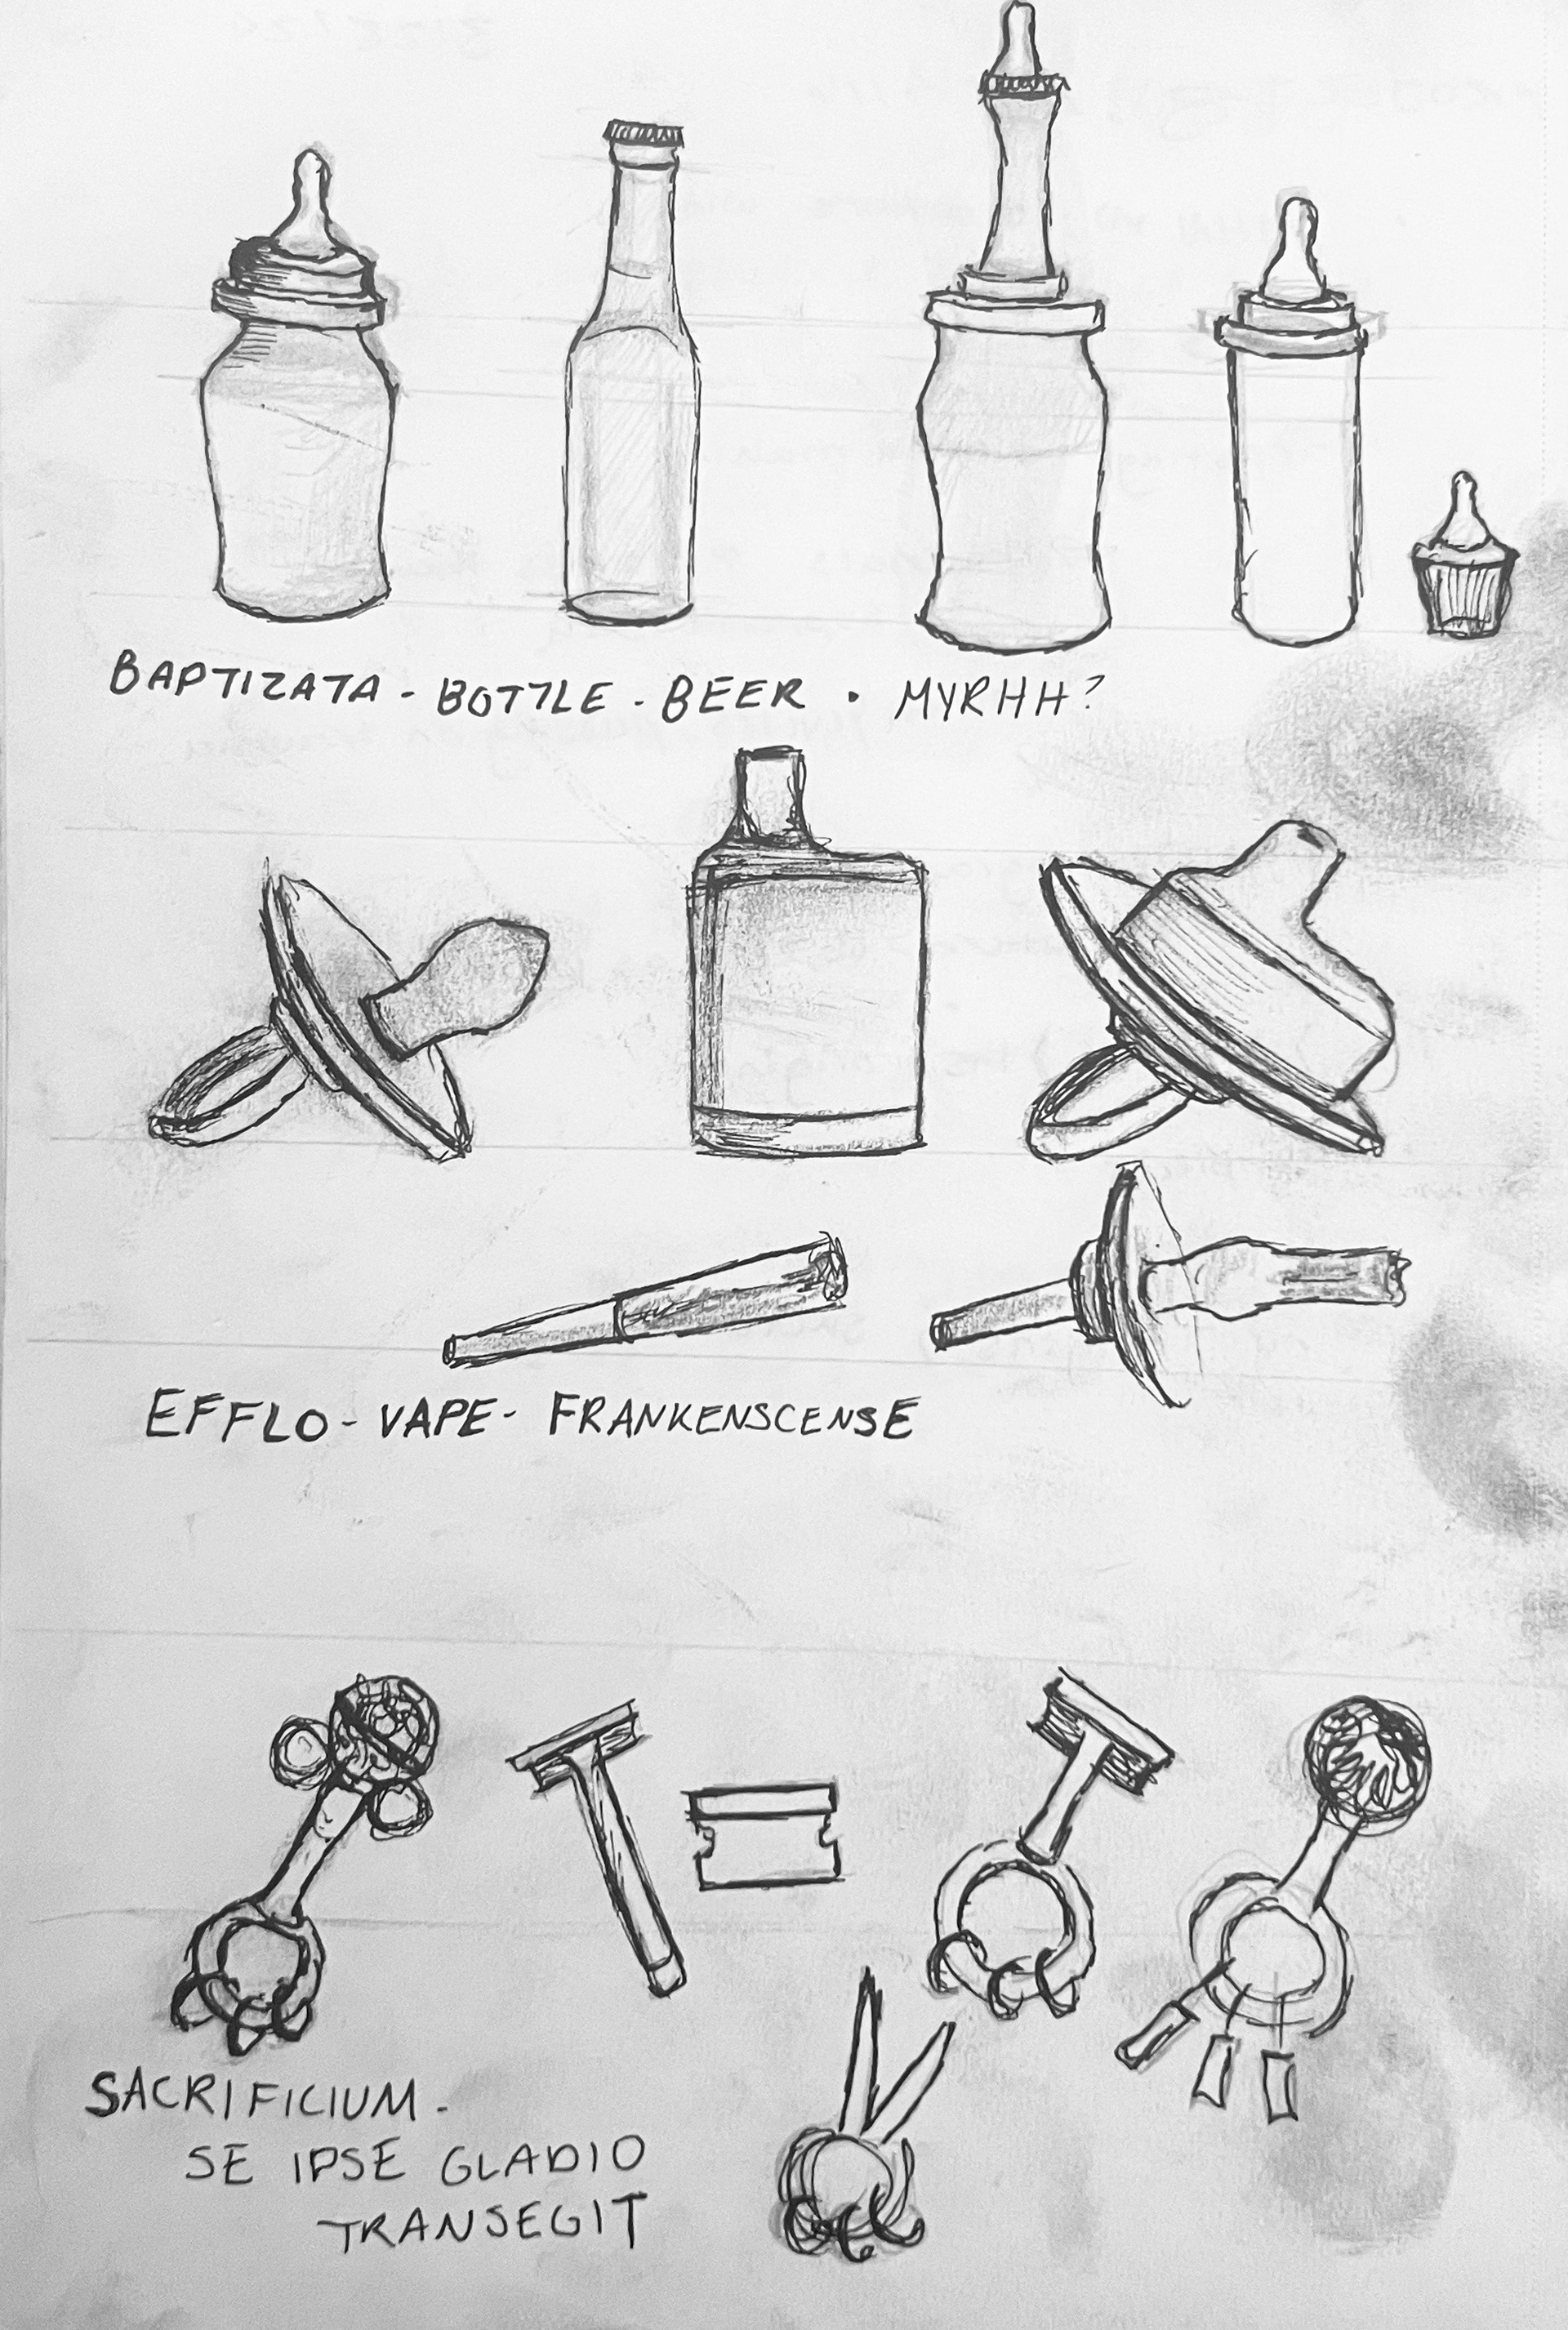 BAPTIZATA - BOTTLE - BEER • MYRHH?
EFFLO - VAPE - FRANKENSCENSE
SACRIFICIUM -
SE IPSE GLADIO
TRANSEGIT